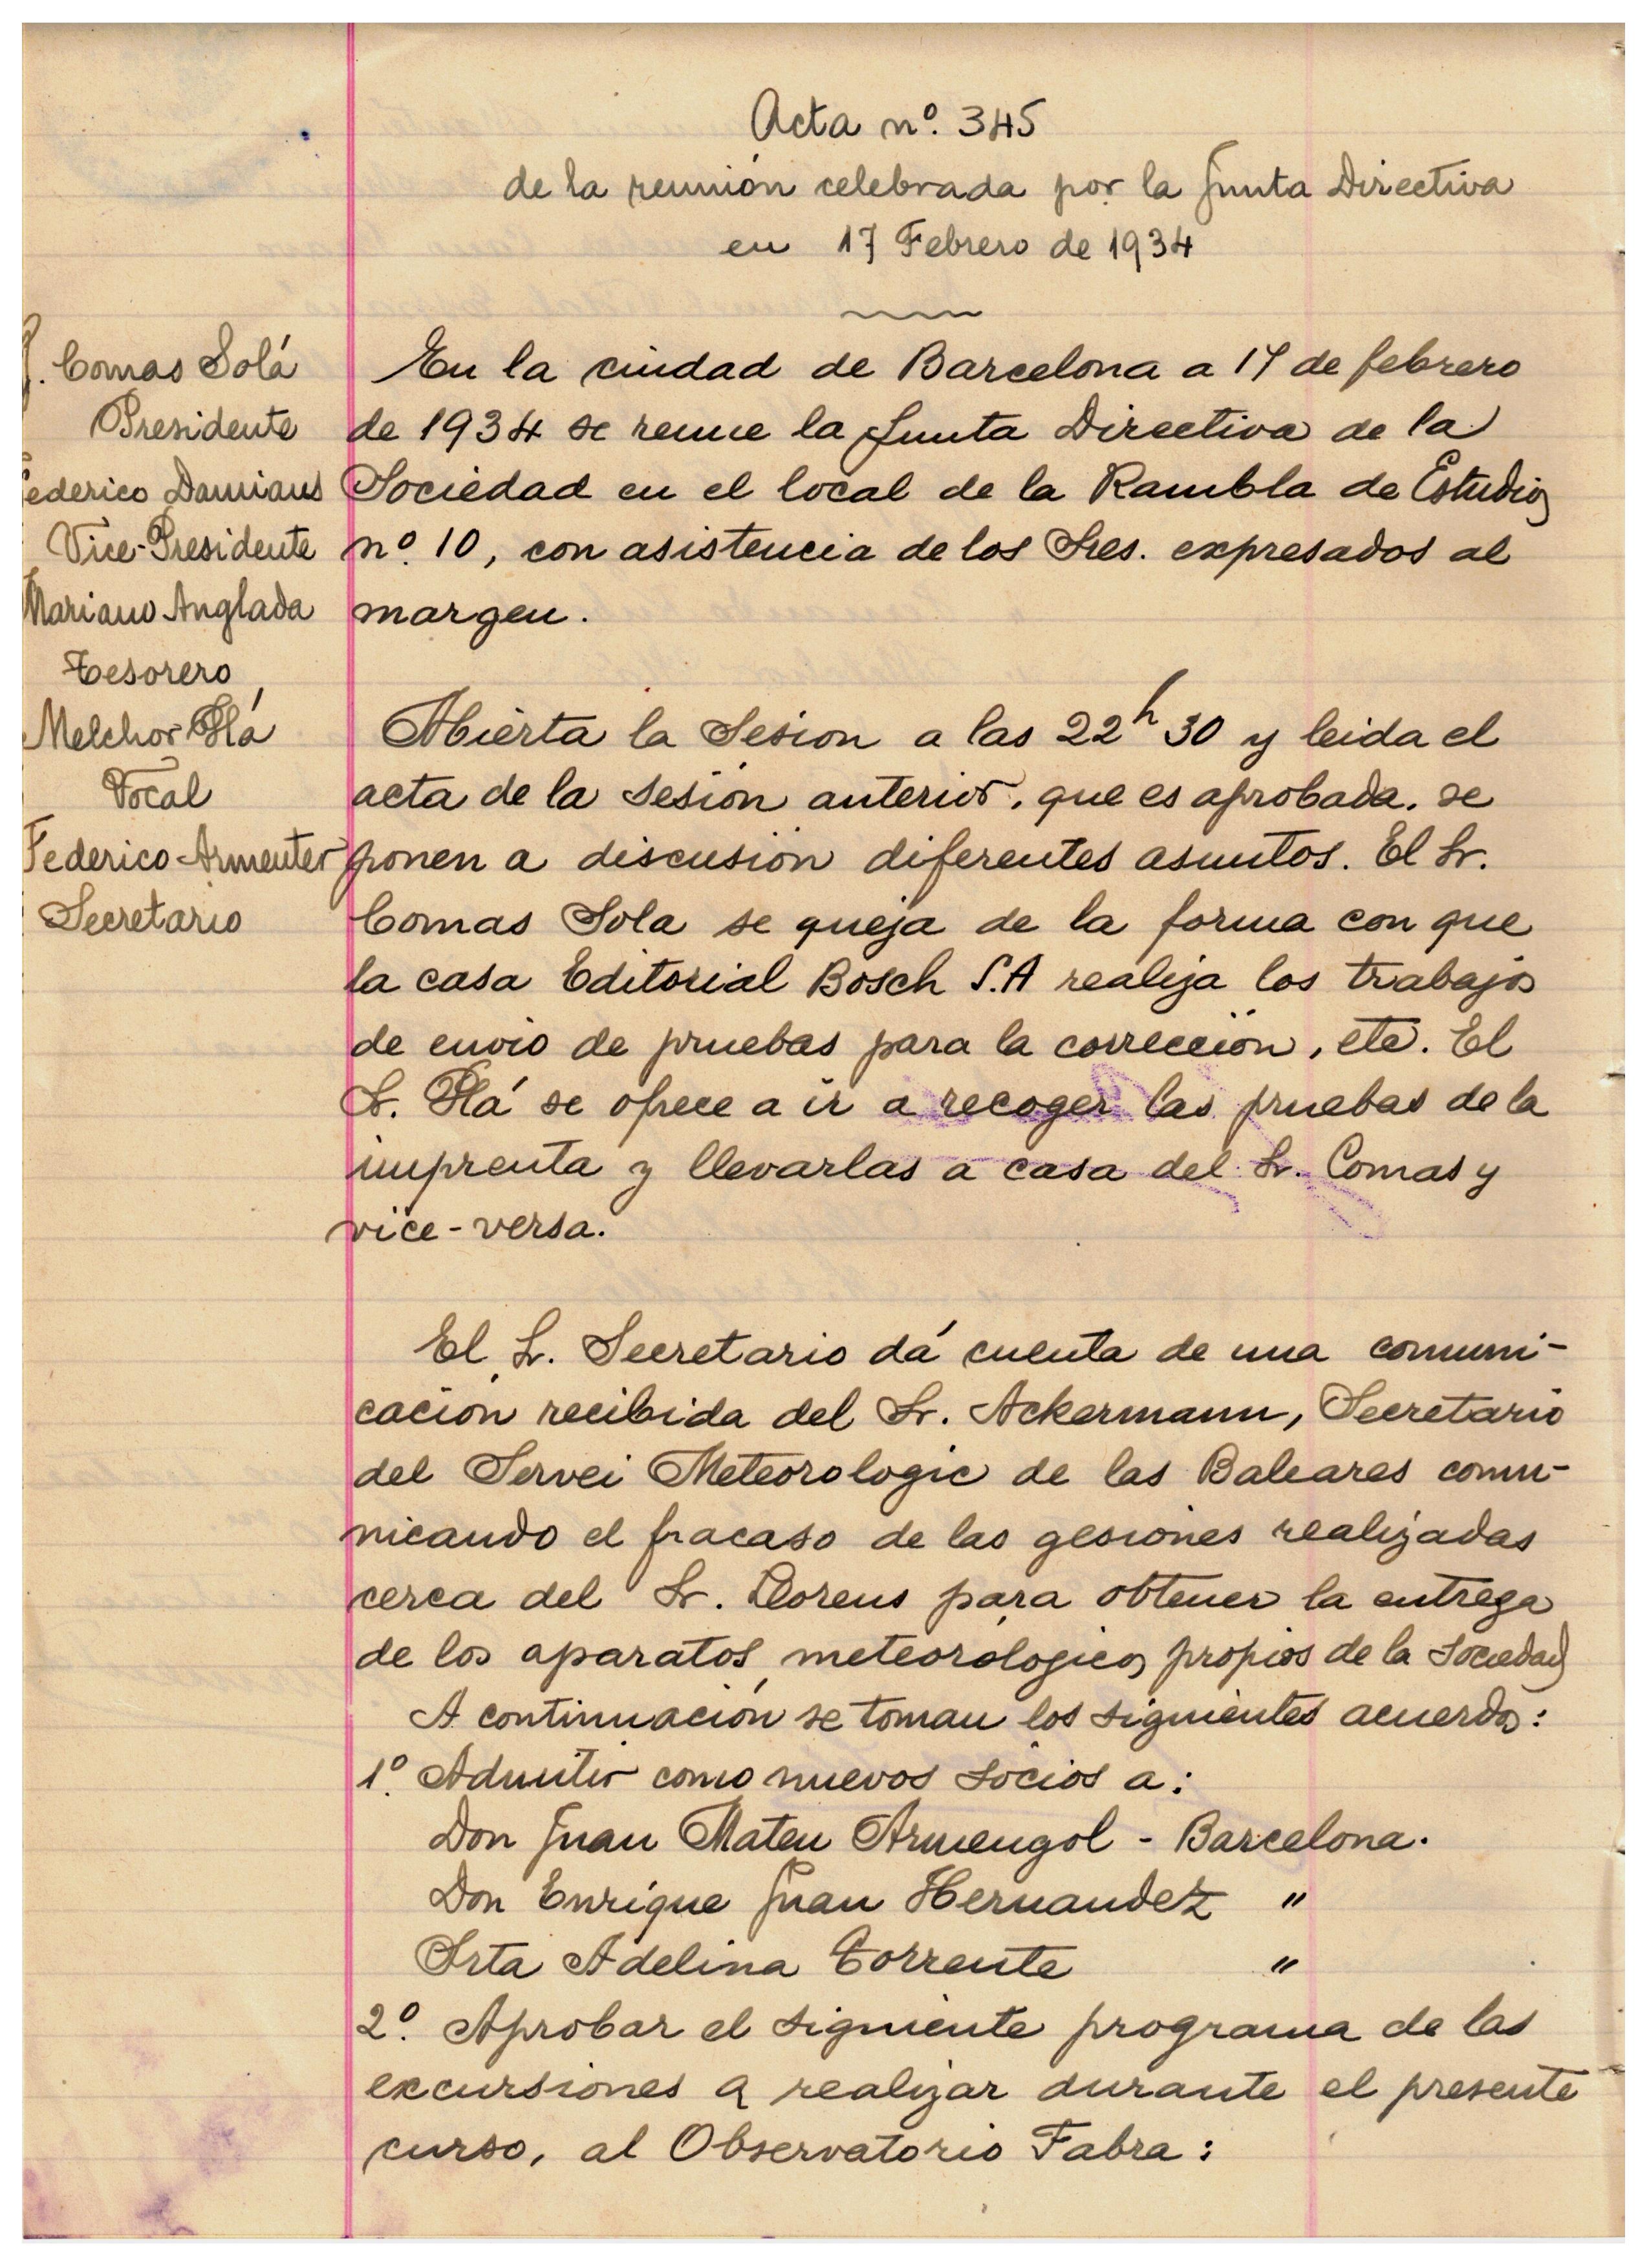 Acta nº. 345
de la reunión celebrada por la Junta Directiva
en 17 Febrero de 1934
J. Comas Solá
Presidente
Federico Damians
Vice-Presidente
Mariano Anglada
Tesorero
Melchor Plá
Vocal
Federico Armenter
Secretario
En la ciudad de Barcelona a 17 de febrero
de 1934 se reune la Junta Directiva de la
Sociedad en el local de la Rambla de Estudios
nº. 10, con asistencia de los Sres. expresados al
margen.
Abierta la Sesión a las 22h 30 y leida el
acta de la sesión anterior, que es aprobada, se
ponen a discusión diferentes asuntos. El Sr.
Comas Sola se queja de la forma con que
la casa Editorial Bosch S.A realiza los trabajos
de envio de pruebas para la corrección, etc. El
Sr. Plá se ofrece a ir a recoger las pruebas de la
imprenta y llevarlas a casa del Sr. Comas y
vice-versa.
El Sr. Secretario dá cuenta de una comuni-
cación recibida del Sr. Ackermann, Secretario
del Servei Meteorologic de las Baleares comu-
nicando el fracaso de las gesiones realizadas
cerca del Sr. Llorens para obtener la entrega
de los aparatos meteorólogicos propios de la Sociedad
A continuación se toman los siguientes acuerdos:
1º. Admitir como nuevos socios a:
Don Juan Mateu Armengol - Barcelona.
Don Enrique Juan Hernandez "
Srta Adelina Torrente "
2º. Aprobar el siguiente programa de las
excursiones a realizar durante el presente
curso, al Observatorio Fabra: